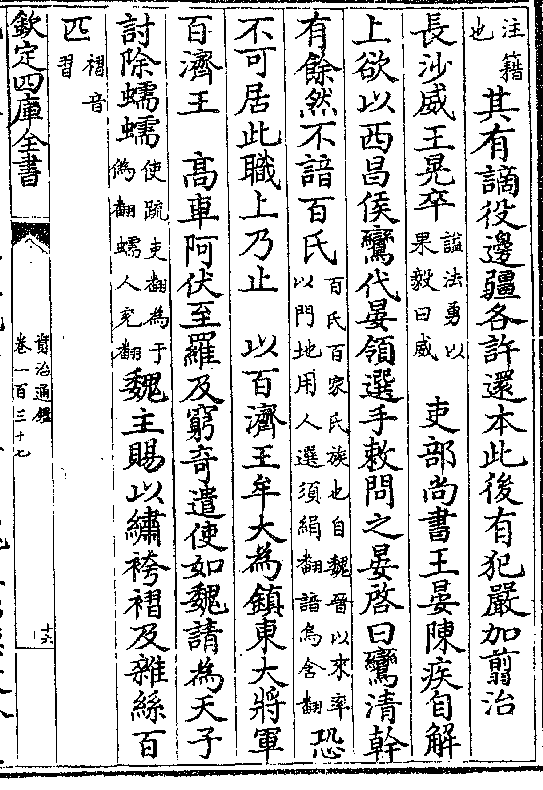 注籍
也
其有謫役邊疆各許還本此後有犯嚴加翦治
長沙威王晃卒
諡法勇以
果毅曰威
吏部尚書王晏陳疾自解
上欲以西昌侯鸞代晏領選手敕問之晏啓曰鸞清幹
有餘然不諳百氏
百氏百家氏族也自魏晉以來率
以門地用人選須絹翻諳烏含翻
恐
不可居此職上乃止　以百濟王牟大為鎮東大將軍
百濟王　高車阿伏至羅及窮奇遣使如魏請為天子
討除蠕蠕
使疏吏翻為于
偽翻蠕人兖翻
魏主賜以繡袴褶及雜綵百
匹
褶音
習
欽定四庫全書
資治通鑑
卷一百三十七
十六